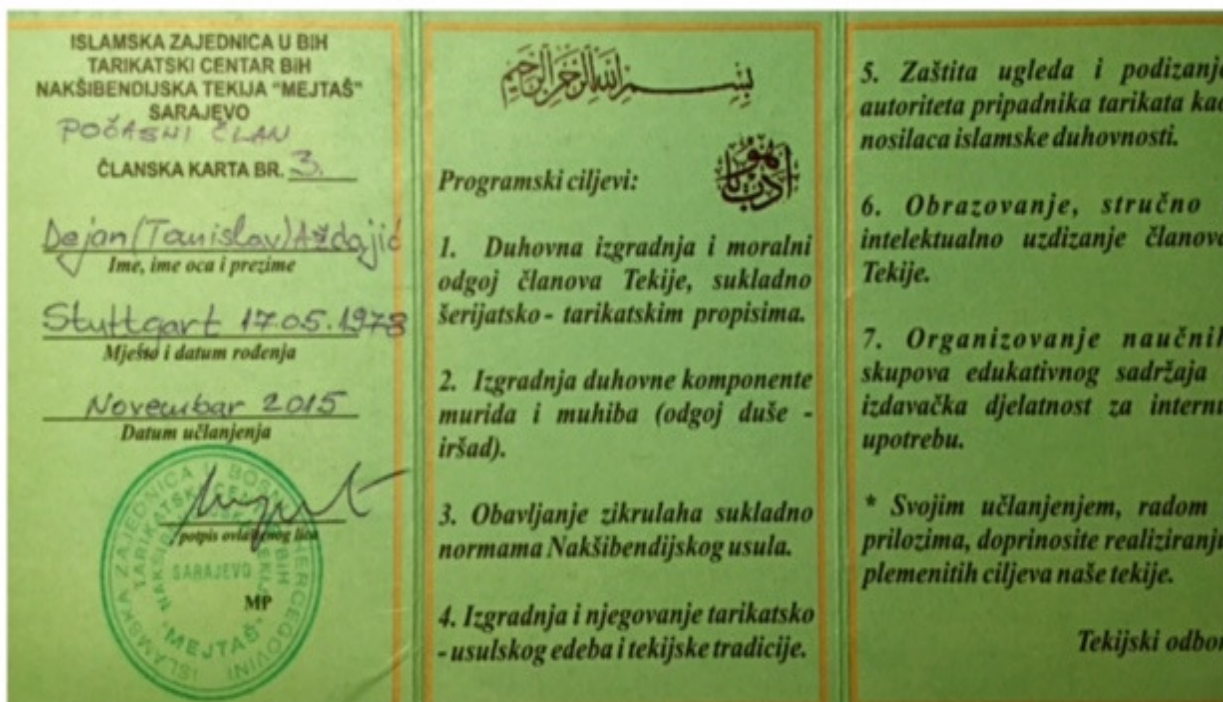 ISLAMSKA ZAJEDNICA U BIH
TARIKATSKI CENTAR BIH
NAKŠIBENDIJSKA TEKIJA "MEJTAŠ"
SARAJEVO
POČASNI ČLAN
ČLANSKA KARTA BR. 3.
Dejan (Tomislav) Aždajić
Ime, ime oca i prezime
Stuttgart 17.05.1978
Mjesto i datum rođenja
Novembar 2015
Datum učlanjenja
potpis ovlaštenog lica
SARAJEVO
MP
"MEJTAŠ"
بسم الله الرحمن الرحيم
Programski ciljevi:
1. Duhovna izgradnja i moralni
odgoj članova Tekije, sukladno
šerijatsko - tarikatskim propisima.
2. Izgradnja duhovne komponente
murida i muhiba (odgoj duše -
iršad).
3. Obavljanje zikrulaha sukladno
normama Nakšibendijskog usula.
4. Izgradnja i njegovanje tarikatsko
- usulskog edeba i tekijske tradicije.
5. Zaštita ugleda i podizanje
autoriteta pripadnika tarikata kao
nosilaca islamske duhovnosti.
6. Obrazovanje, stručno
intelektualno uzdizanje članova
Tekije.
7. Organizovanje naučnih
skupova edukativnog sadržaja
izdavačka djelatnost za internu
upotrebu.
* Svojim učlanjenjem, radom
prilozima, doprinosite realiziranju
plemenitih ciljeva naše tekije.
Tekijski odbor